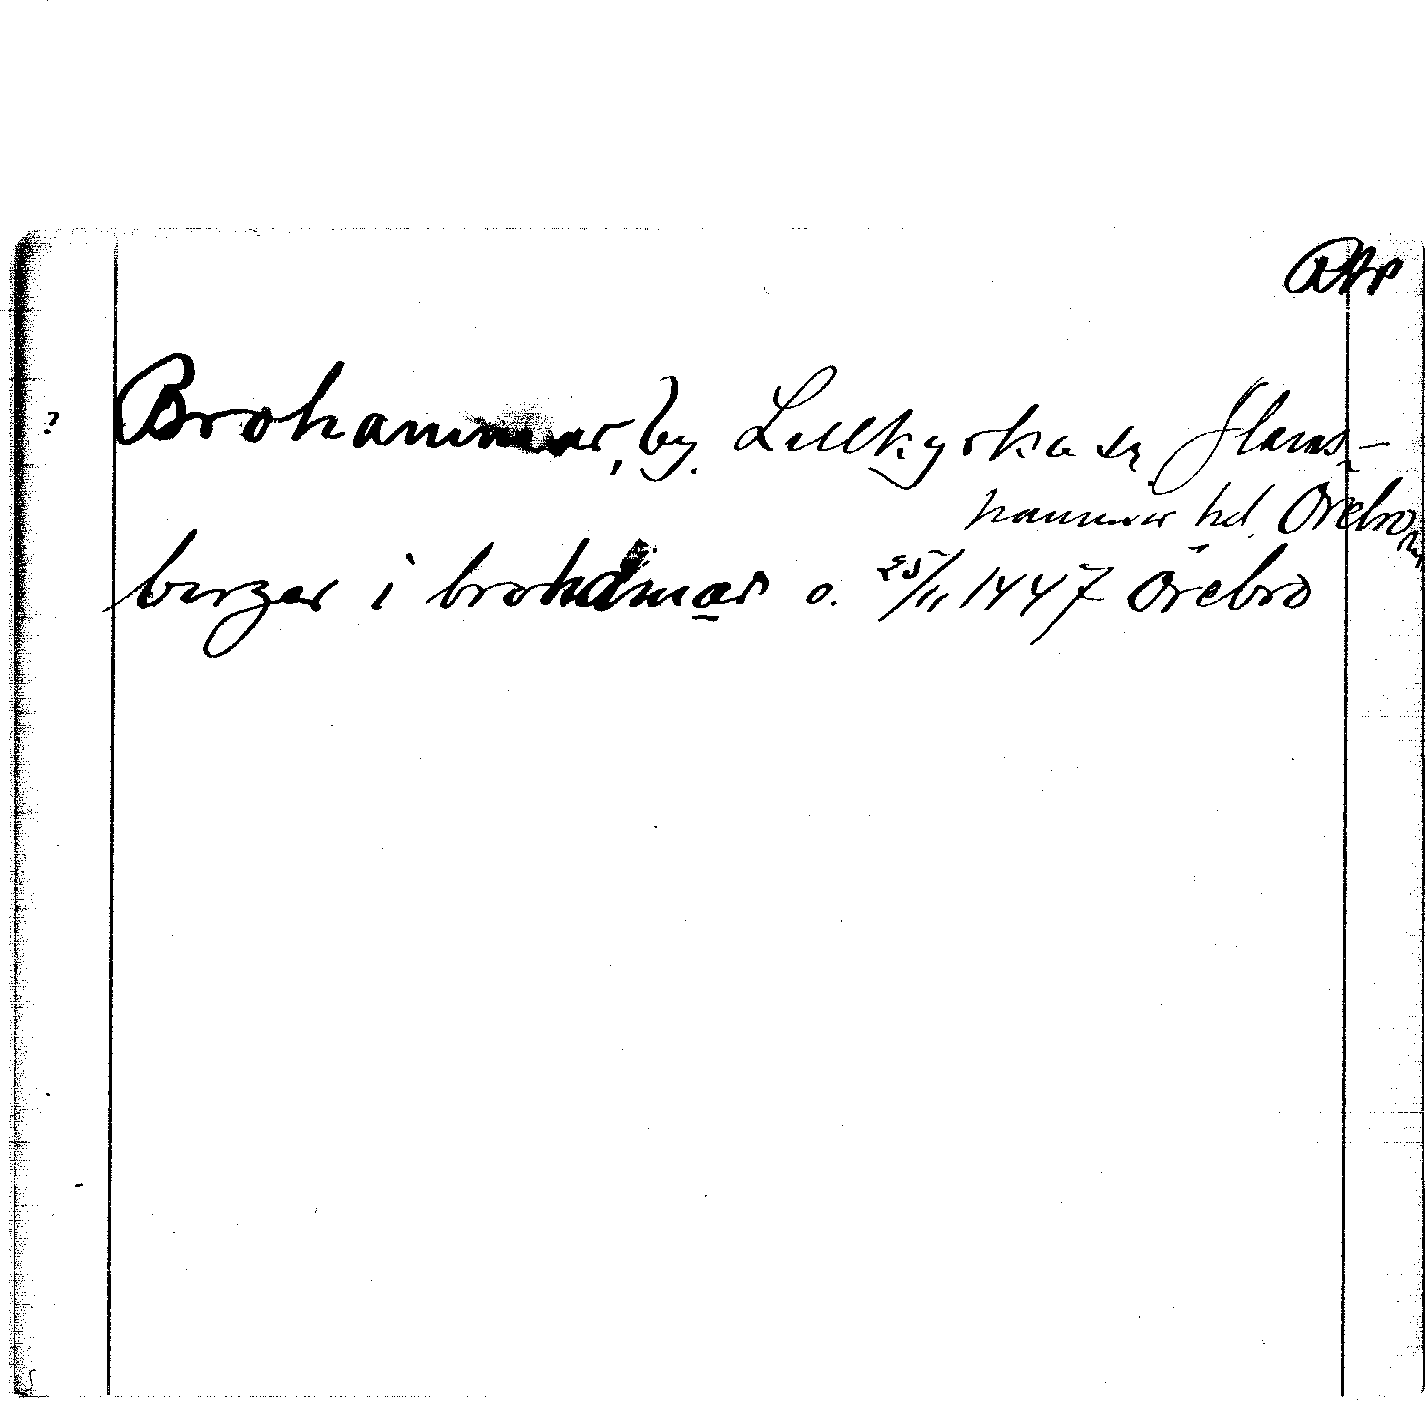 RAp
? Brohammar, by. Lillkyrka sn Glans-
hammar hd. Örebro
byrger i brohamar o. 25/11 1447 Örebro